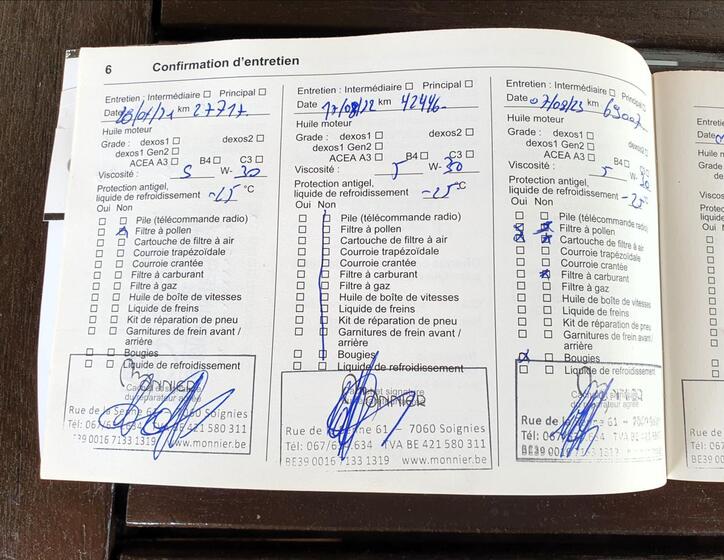 6 Confirmation d'entretien
Entretien : Intermédiaire Principal
Date km 27717
Huile moteur
Grade : dexos1 dexos2
dexos1 Gen2
ACEA A3 B4 C3
Viscosité : 5 W- 30
Protection antigel,
liquide de refroidissement -25 °C
Oui Non
Pile (télécommande radio)
Filtre à pollen
Cartouche de filtre à air
Courroie trapézoïdale
Courroie crantée
Filtre à carburant
Filtre à gaz
Huile de boîte de vitesses
Liquide de freins
Kit de réparation de pneu
Garnitures de frein avant /
arrière
Bougies
Liquide de refroidissement
MONNIER
Rue de la Senne 61 7060 Soignies
Tél: 067/ 634 TVA BE 421 580 311
BE39 0016 7133 1319 www.monnier.be
Entretien : Intermédiaire Principal
Date 17/08/22 km 42446
Huile moteur
Grade : dexos1 dexos2
dexos1 Gen2
ACEA A3 B4 C3
Viscosité : 5 W- 30
Protection antigel,
liquide de refroidissement -25 °C
Oui Non
Pile (télécommande radio)
Filtre à pollen
Cartouche de filtre à air
Courroie trapézoïdale
Courroie crantée
Filtre à carburant
Filtre à gaz
Huile de boîte de vitesses
Liquide de freins
Kit de réparation de pneu
Garnitures de frein avant /
arrière
Bougies
Liquide de refroidissement
MONNIER
Rue de la Senne 61 - 7060 Soignies
Tél: 067/ 634 TVA BE 421 580 311
BE39 0016 7133 1319 www.monnier.be
Entretien : Intermédiaire Principal
Date 07/08/23 km
Huile moteur
Grade : dexos1 dexos2
dexos1 Gen2
ACEA A3 B4
Viscosité : 5 W- 30
Protection antigel,
liquide de refroidissement -25 °C
Oui Non
Pile (télécommande radio)
Filtre à pollen
Cartouche de filtre à air
Courroie trapézoïdale
Courroie crantée
Filtre à carburant
Filtre à gaz
Huile de boîte de vitesses
Liquide de freins
Kit de réparation de pneu
Garnitures de frein avant /
arrière
Bougies
Liquide de refroidissement
MONNIER
Rue de la Senne 61 - 7060 Soignies
Tél: 067/ 634 TVA BE 421 580 311
BE39 0016 7133 1319 www.monnier.be